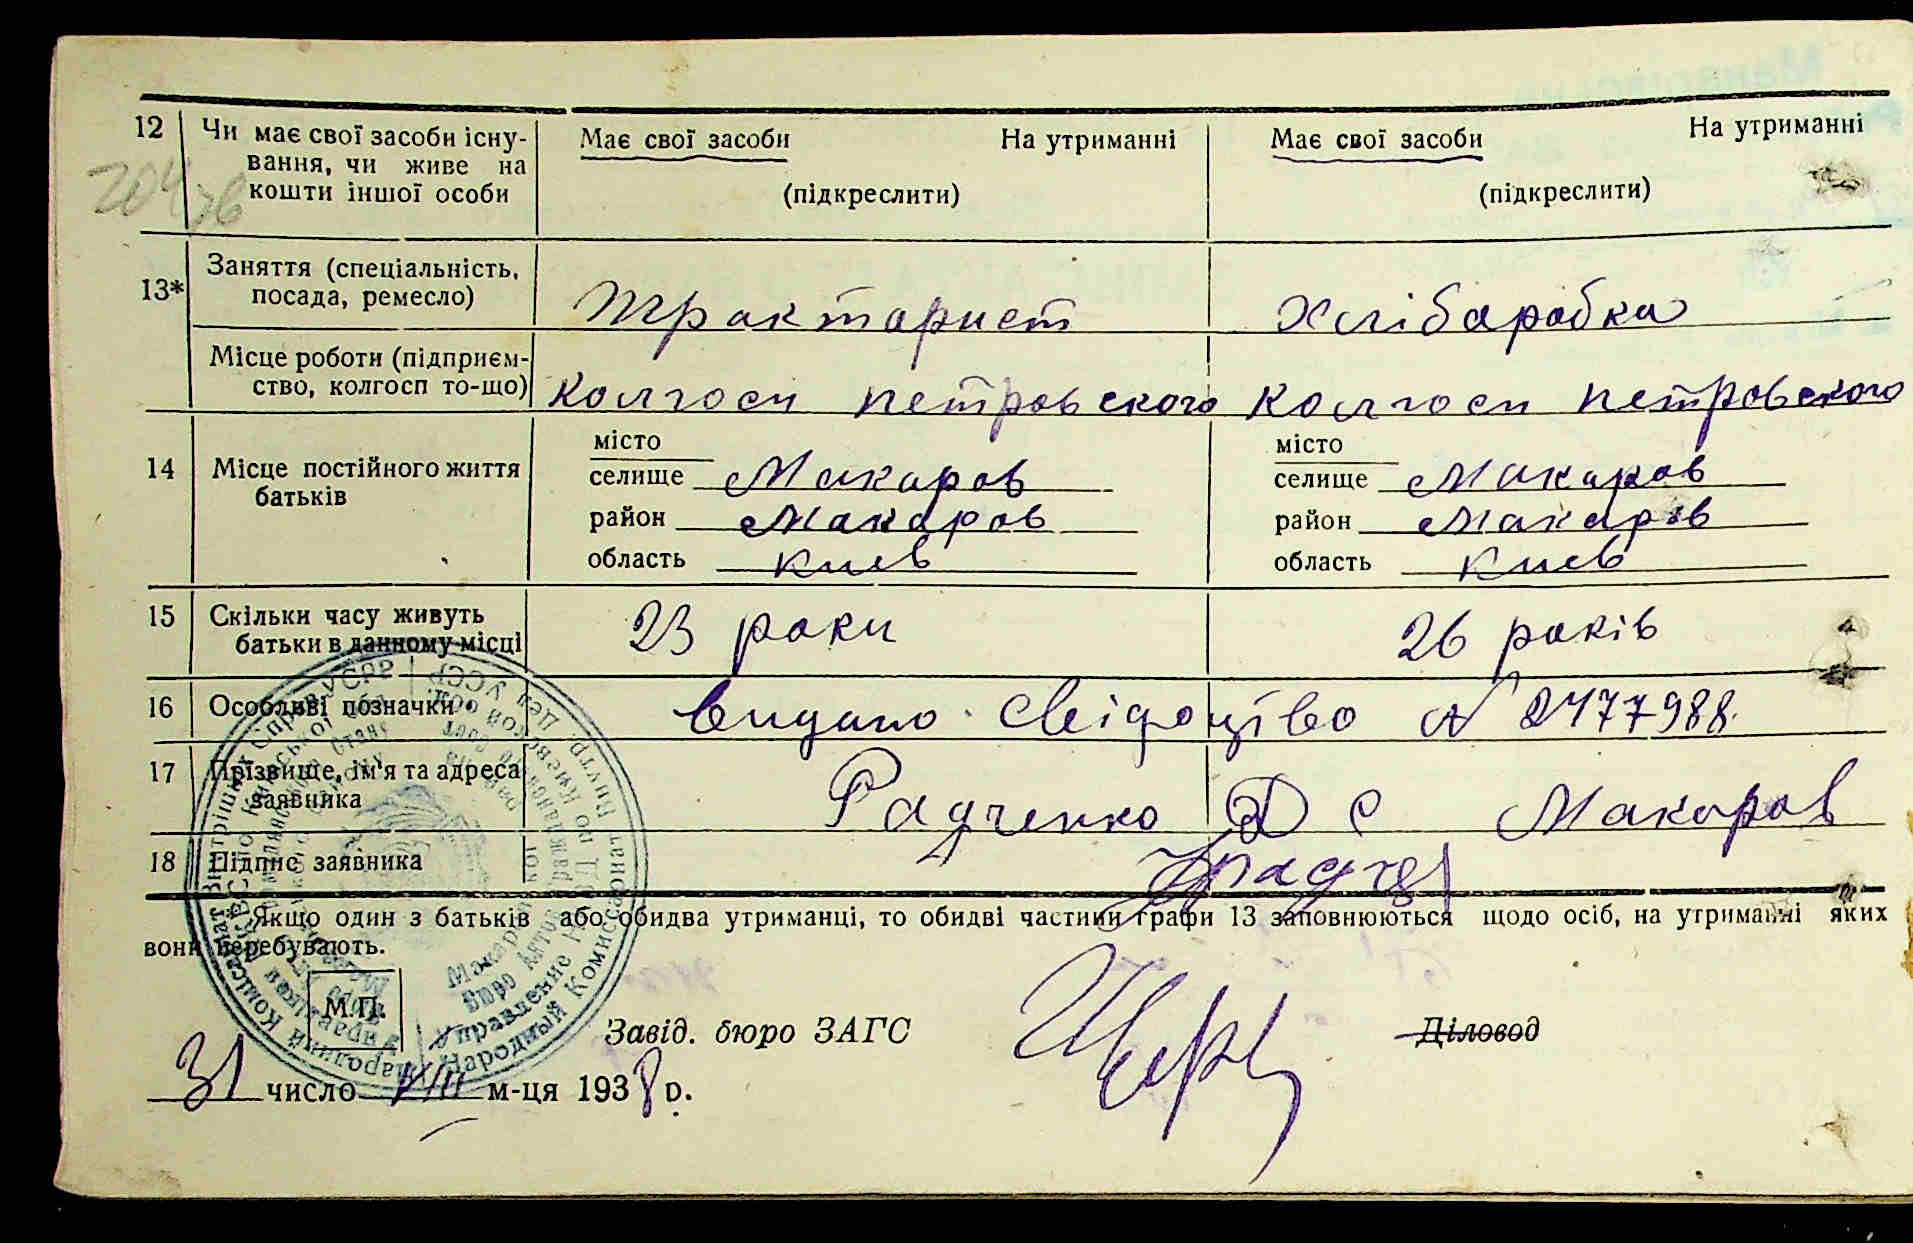 12 Чи має свої засоби існу- Має свої засоби На утриманні Має свої засоби На утриманні
вання, чи живе на
кошти іншої особи (підкреслити) (підкреслити)
13* Заняття (спеціальність, посада, ремесло) Трактарист Хлібаробка
Місце роботи (підприєм-
ство, колгосп то-що) Колгосп петровского Колгосп петровского
14 Місце постійного життя
батьків
місто місто
селище Макаров селище Макаров
район Макаров район Макаров
область Киев область Киев
15 Скільки часу живуть
батьки в данному місці 23 роки 26 років
16 Особливі позначки Видано Свідоцтво N 2477988.
17 Прізвище, ім'я та адреса
заявника Радченко Д С Макаров
18 Підпис заявника
Якщо один з батьків або обидва утриманці, то обидві частини графи 13 заповнюються щодо осіб, на утриманні яких
вони перебувають.
М.П.
Завід. бюро ЗАГС Діловод
31 число VIII м-ця 1938 р.